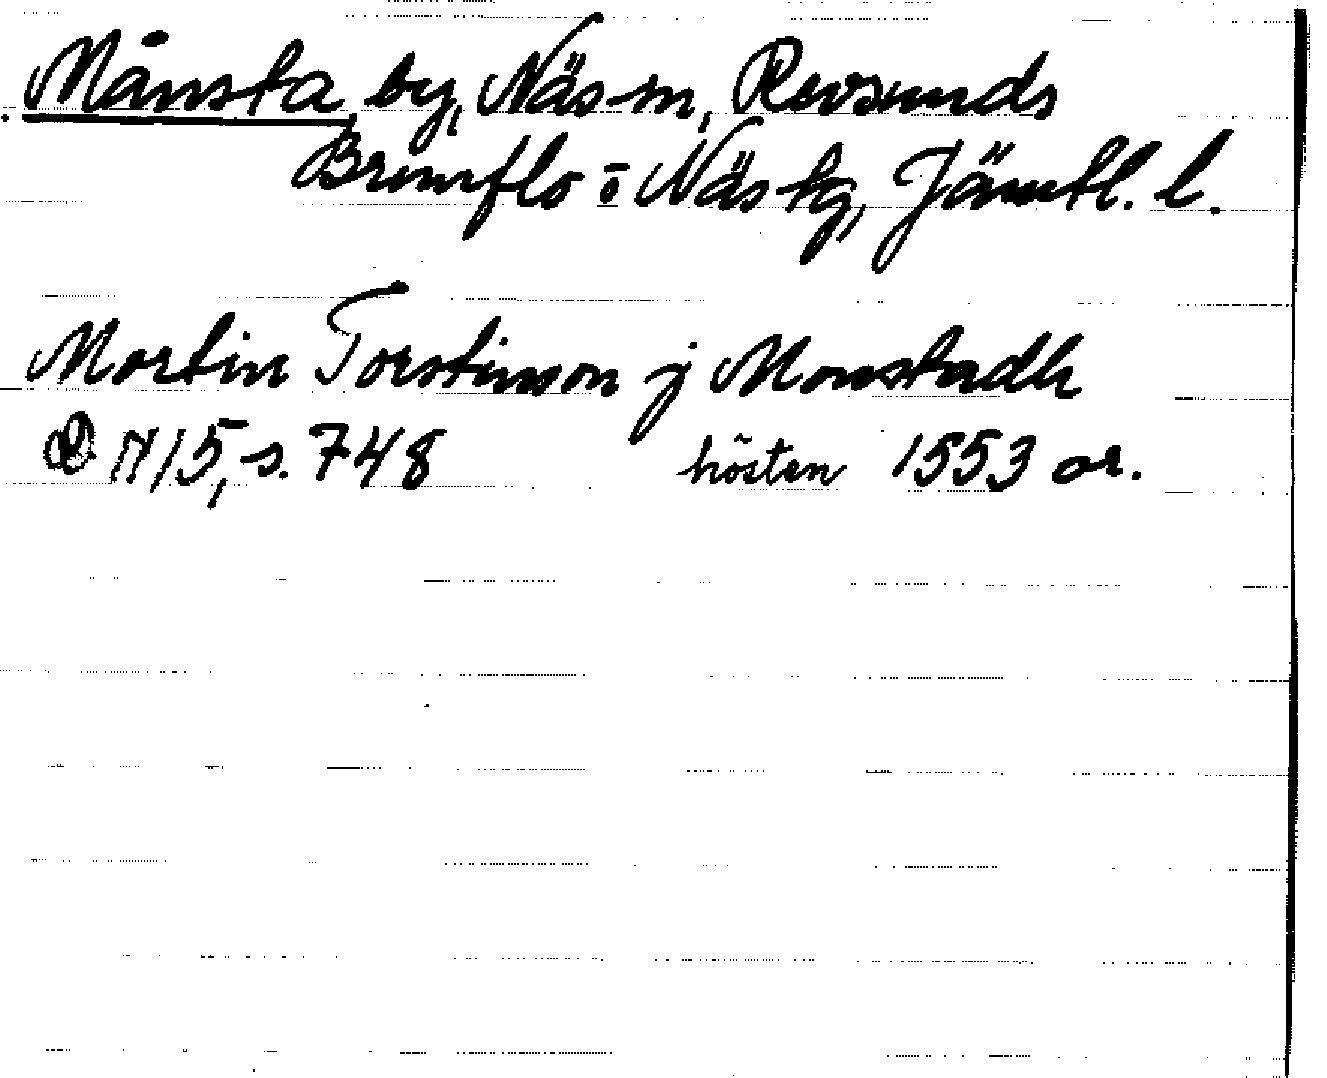 Månsta by, Näs sn, Revsunds
Brunflo o Näs tg, Jämtl. l.
Mortin Torstinson j Monstadh
15, s. 748 hösten 1553 or.